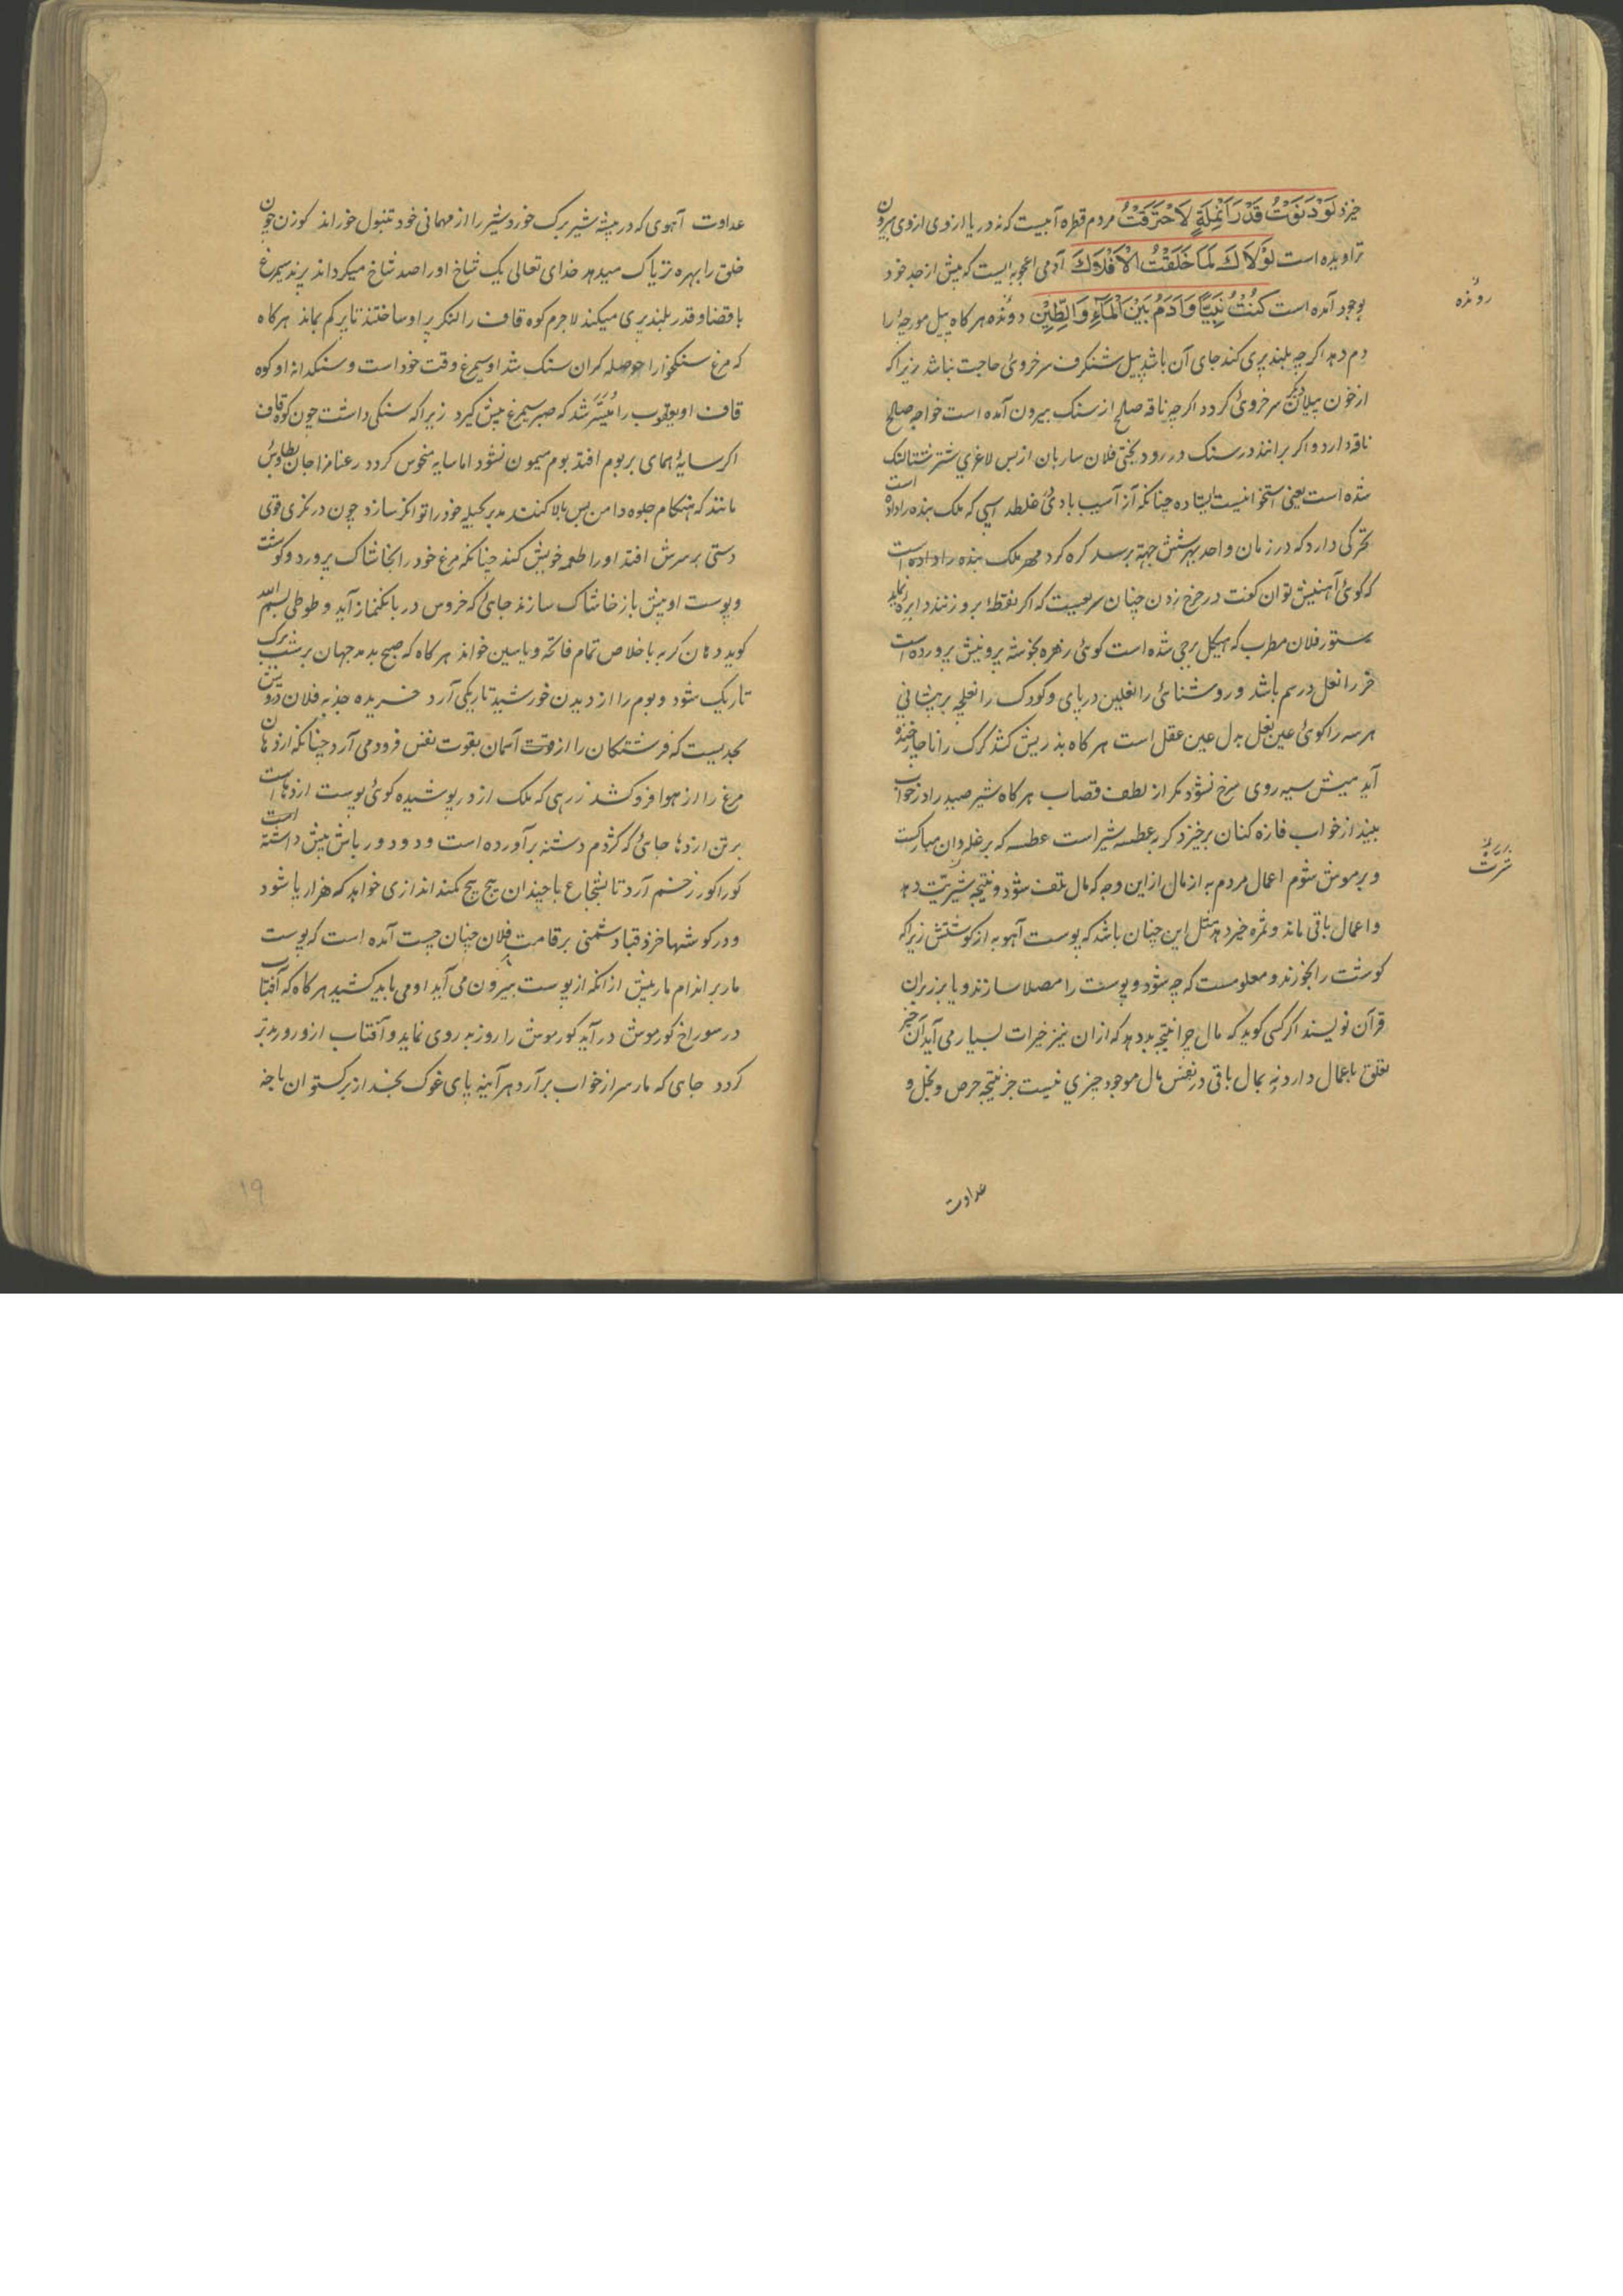 خیزد لَوْ دَنَوْتُ قَدْرَ اَنْمِلَةٍ لَاحْتَرَقْتُ مردم قطره آبیست که نه دریا ازدی ازوی بیرون
تراویده است لَوْلَاكَ لَمَا خَلَقْتُ الْاَفْلَاكَ آدمی اعجوبه ایست که پیش از جد خود
بوجود آمده است كُنْتُ نَبِيًّا وَاٰدَمُ بَيْنَ الْمَاۤءِ وَالطِّيْنِ دونده هرگاه پیل مورچهٔ را
دم دهد اگرچه بلند پری کند جای آن باشد پیل شنگرف سرخروئی حاجت نباشد زیراکه
از خون پیلان سرخروئی گردد اگرچه ناقه صلح از سنک بیرون آمده است خواجه صلح
ناقه دارد و اگر براند در سنک در رود بختی فلان ساربان از بس لاغری شتر شتالنک
شده است یعنی استخوانیست ایستاده چنانکه از آسیب بادی غلطد اسپی که ملک بنده را داده است
تحرکی دارد که در زمان واحد بهر شش جهة برسد کره کرد مهر ملک بنده را داده است
که گوئی آهنینش توان گفت در چرخ زدن چنان سریعست که اگر نقطهٔ برو زنند دایره نماید
ستور فلان مطرب که هیکل برجی شده است گوئی زهره بخوشه پروینش پرورده است
خر را نعل در سم باشد و روشنائی را نعلین در پای و کودک را نعلچه بر پیشانی
هر سه را گوئی عین نعل بدل عین عقل است هرگاه بز ریش کشد گرگ را ناچار خنده
آید میش سیه روی سرخ نشود مگر از لطف قصاب هرگاه شیر صید را در خواب
بیند از خواب فازه کنان برخیزد گربه عطسه شیر است عطسه که بر غله دان مبارکست
و بر موش شوم اعمال مردم به از مال از این وجه که مال تلف شود و نتیجه شرّیّت دهد
و اعمال باقی ماند و ثمره خیر دهد مثل این چنان باشد که پوست آهو به از گوشتش زیراکه
گوشت را بخورند و معلومست که چه شود و پوست را مصلا سازند و یا بر زبران
قرآن نویسند اگر کسی گوید که مال چرا نتیجه بد دهد که ازان نیز خیرات بسیار می آید آن خیر
تعلق باعمال دارد نه بمال باقی در نفس مال موجود چیزی نیست جز نتیجه حرص و بخل و
عداوت
رونده
شرّت
عداوت آهوی که در بیشه شیر برگ خورد شیر را از مهمانی خود تنبول خوراند گوزن چون
خلق را بهره تریاک میدهد خدای تعالی یک شاخ او را صد شاخ میگرداند پرند سیمرغ
با قضا و قدر بلند پری میکند لاجرم کوه قاف را لنگر پر او ساختند تا پر کم نماند هرگاه
که مرغ سنگخوار را حوصله گران سنگ شد او سیمرغ وقت خود است و سنگدانهٔ او کوه
قاف او یعقوب را مُیَسَّر شد که صبر سیمرغ پیش گیرد زیراکه سنگی داشت چون کوه قاف
اگر سایهٔ همای بر بوم افتد بوم میمون نشود اما سایه منحوس گردد رعنا مزاجان بطاوس
مانند که هنگام جلوه دامن پس بالا کنند مدبر بحیله خود را توانگر سازد چون در نگری قوی
دستی بر سرش افتد او را طعمه خویش کند چنانکه مرغ خود را بخاشاک پرورد و گوشت
و پوست او پیش باز خاشاک سازند جائی که خروس در بانگ نماز آید و طوطی بسم الله
گوید دهان گربه باخلاص تمام فاتحه و یاسین خواند هرگاه که صبح بدمد جهان بر شب‌پرک
تاریک شود و بوم را از دیدن خورشید تاریکی آرد خریده جذبه فلان درویش
بحدیست که فرشتگان را از قوت آسمان بقوت نفس فرود می آرد چنانکه اژدهای
مرغ را از هوا فرو کشد زرهی که ملک اژدر پوشیده گوئی پوست اژدهاست
بر تن اژدها جائی که کژدم دشنه برآورده است و دور باش پیش داشته است
گور اگور زخم آرد تا شجاع با چندان پیچ پیچ کمند اندازی خواهد که هزار پا شود
و در گوشها خزد قباد شمنی بر قامت فلان چنان چست آمده است که پوست
مار بر اندام مار پیش ازانکه از پوست بیرون می آید او می باید کشید هرگاه که آفتاب
در سوراخ کورموش در آید کورموش را روز به روی نماید و آفتاب ازو رو بد تر
گردد جای که مار سر از خواب برآرد هرآینه پای غوک بخسد از برگستوان باخه
۱۹